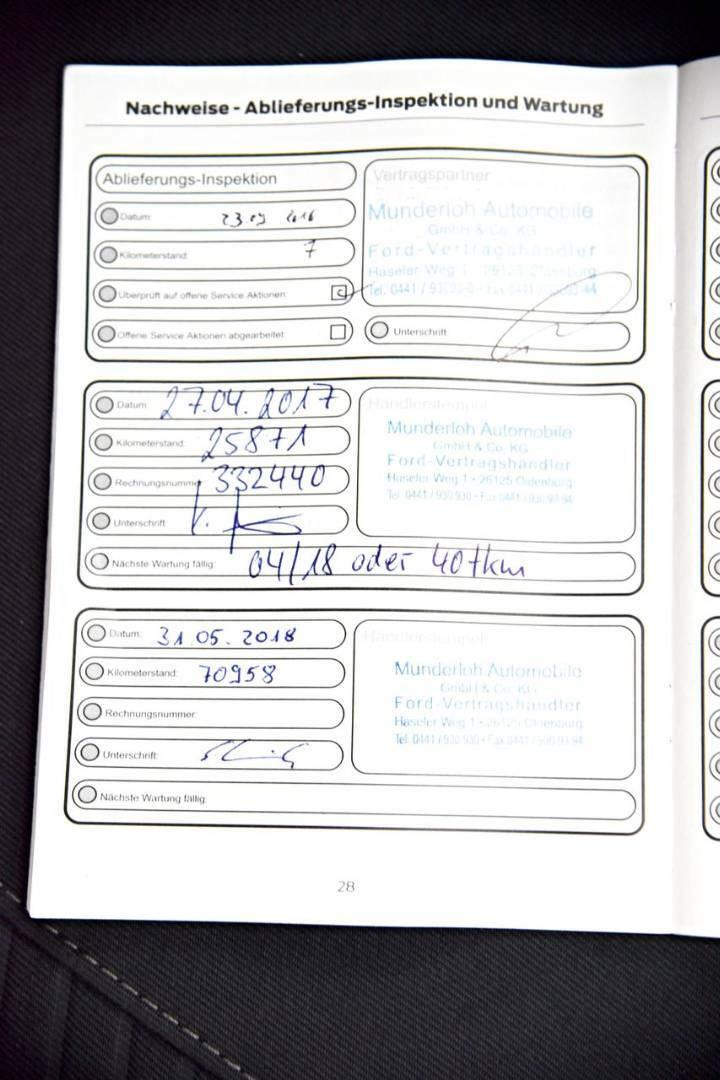 Nachweise - Ablieferungs-Inspektion und Wartung
Ablieferungs-Inspektion
Vertragspartner
Datum:
Munderloh Automobile
GmbH & Co. KG
Kilometerstand: 7
Ford-Vertragshändler
Haseler Weg 1 · 26125 Oldenburg
Überprüft auf offene Service Aktionen:
Tel. 0441 /
Offene Service Aktionen abgearbeitet:
Unterschrift:
Datum: 27.04.2017
Händlerstempel
Kilometerstand: 25871
Munderloh Automobile
GmbH & Co. KG
Ford-Vertragshändler
Rechnungsnummer: 332440
Haseler Weg 1 • 26125 Oldenburg
Tel. 0441 / 930 930 • Fax 0441 / 930 93 94
Unterschrift:
Nächste Wartung fällig: 04/18 oder 40tkm
Datum: 31.05.2018
Händlerstempel
Kilometerstand: 70958
Munderloh Automobile
GmbH & Co. KG
Ford-Vertragshändler
Rechnungsnummer:
Haseler Weg 1 • 26125 Oldenburg
Tel. 0441 / 930 930 • Fax 0441 / 930 93 94
Unterschrift:
Nächste Wartung fällig:
28